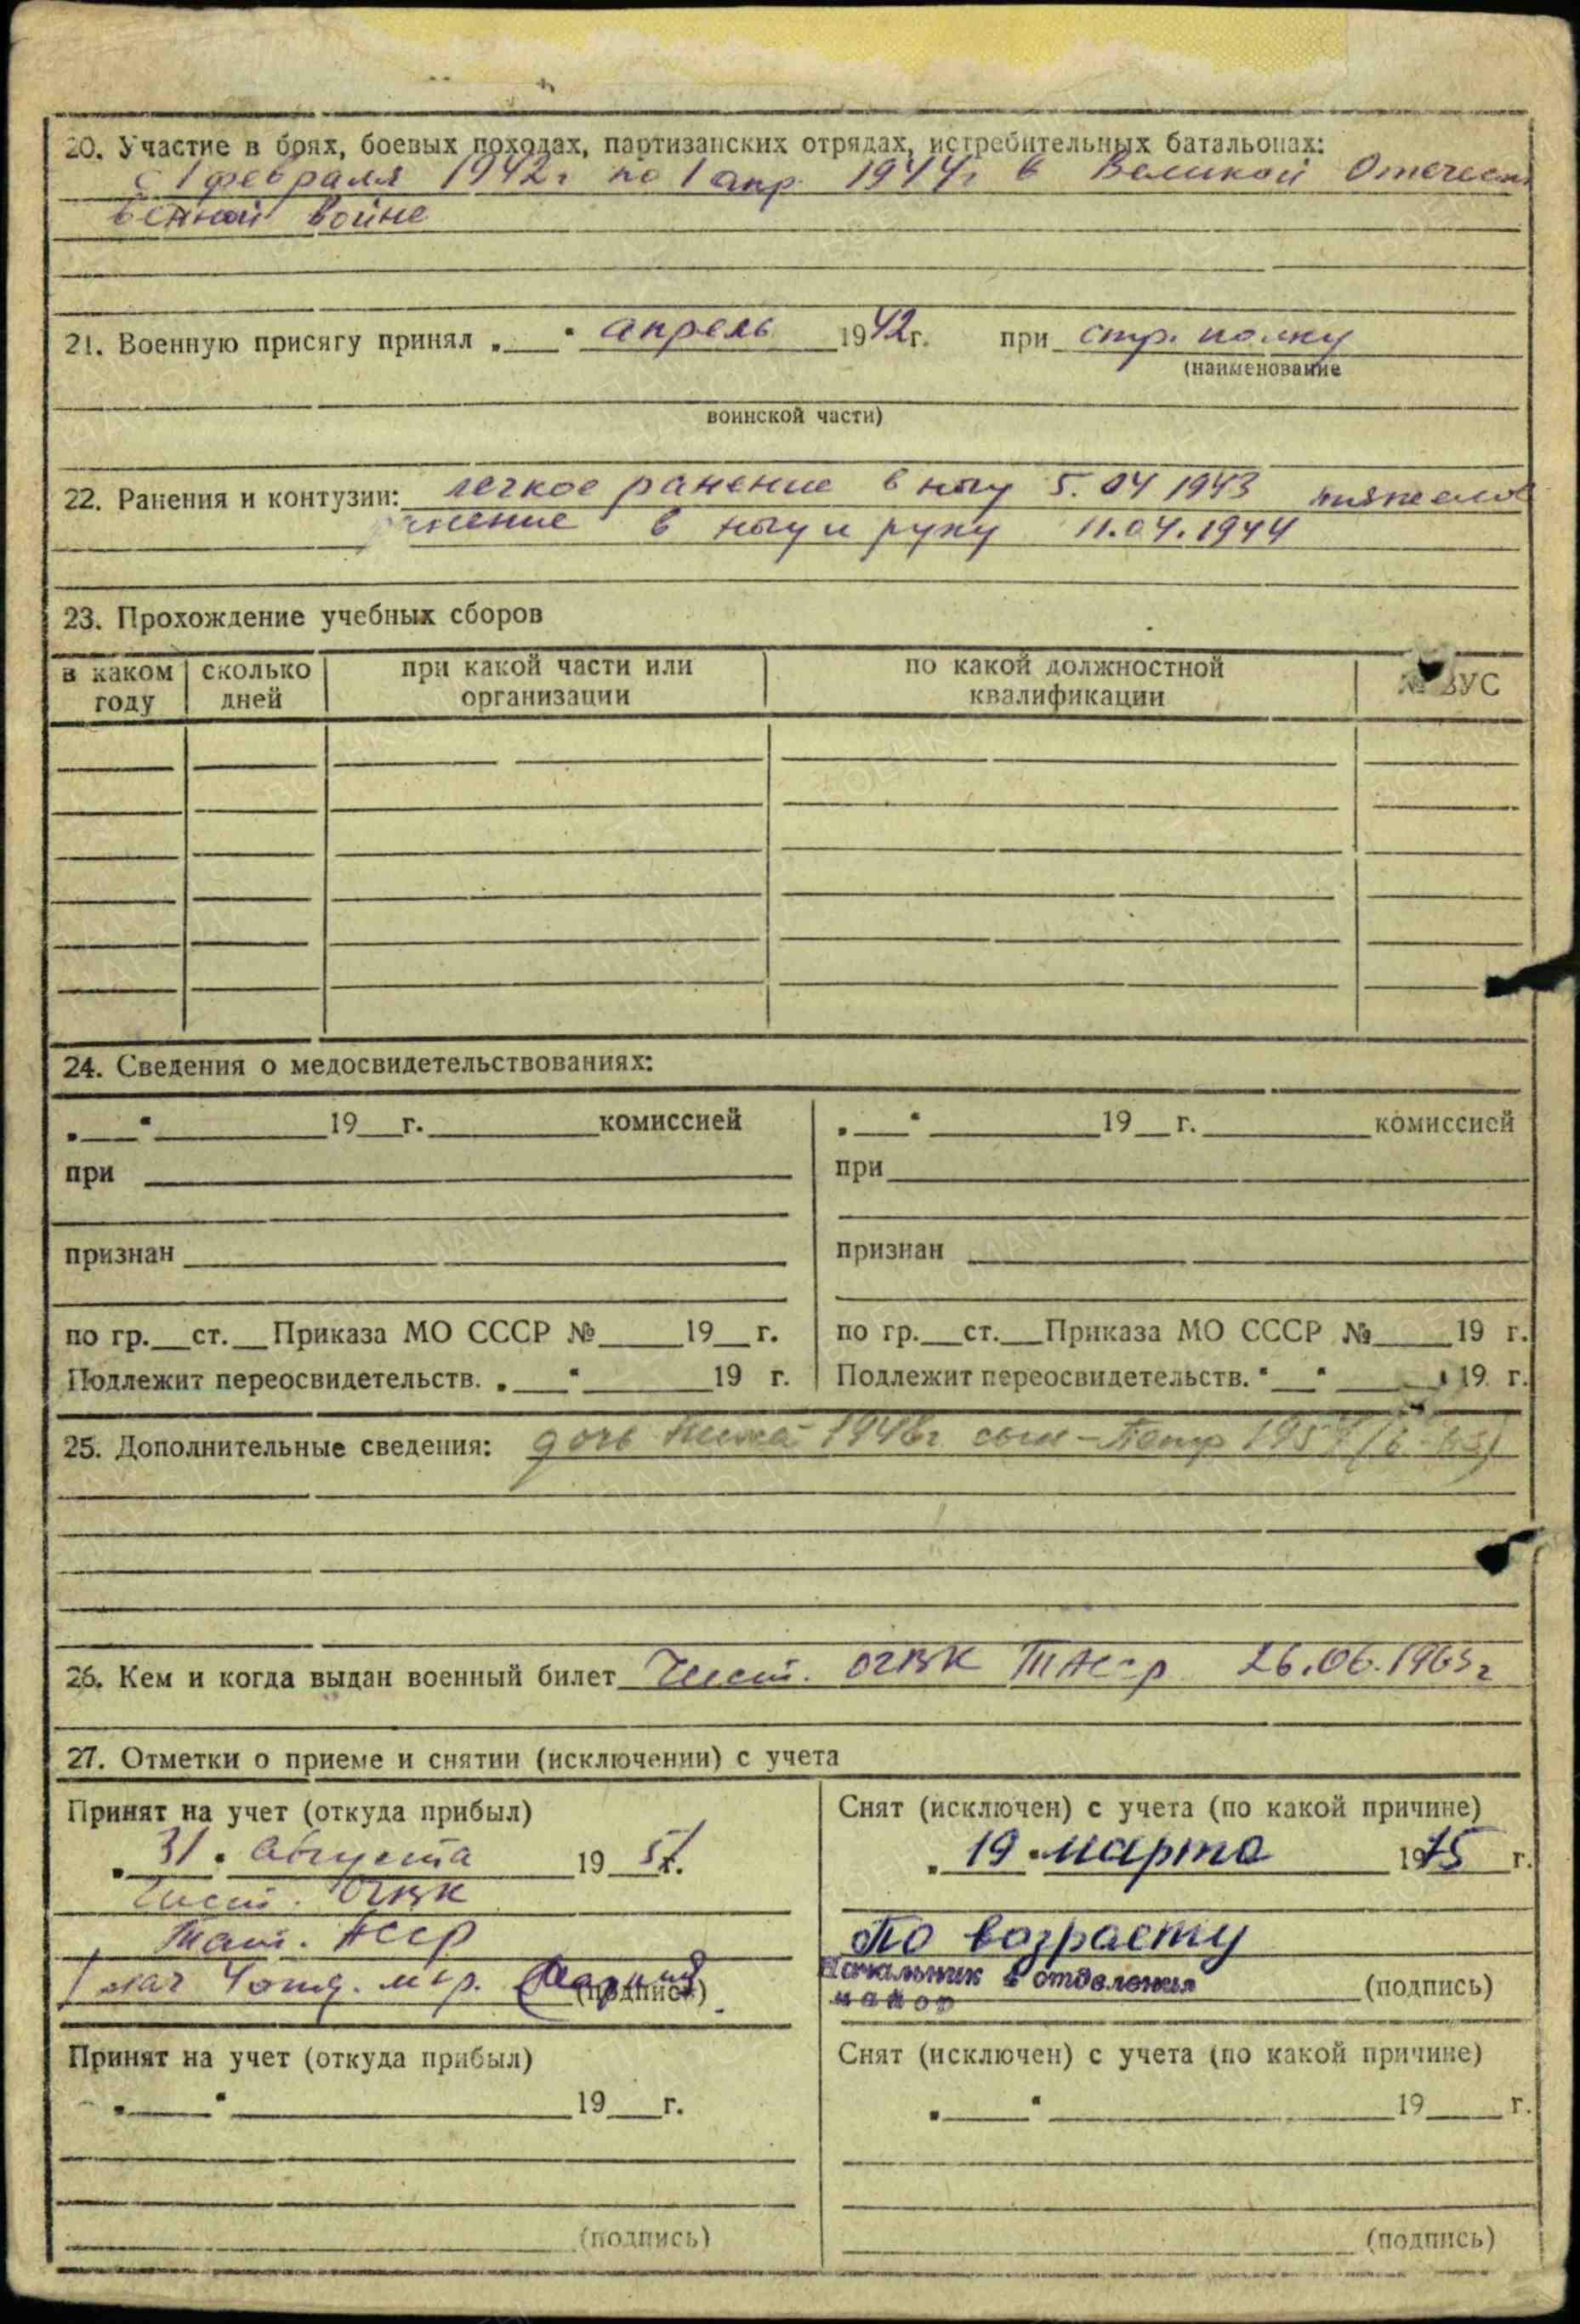 20. Участие в боях, боевых походах, партизанских отрядах, истребительных батальонах:
с 1 февраля 1942г по 1 апр. 1944г в Великой Отечест
венной войне
21. Военную присягу принял „ “ апрель 1942г. при стр. полку
(наименование
воинской части)
22. Ранения и контузии: легкое ранение в ногу 5.04 1943 тяжелое
ранение в ногу и руку 11.04.1944
23. Прохождение учебных сборов
в каком году
сколько дней
при какой части или организации
по какой должностной квалификации
№ ВУС
24. Сведения о медосвидетельствованиях:
„ “ 19 г. комиссией
при
признан
по гр. ст. Приказа МО СССР № 19 г.
Подлежит переосвидетельств. „ “ 19 г.
„ “ 19 г. комиссией
при
признан
по гр. ст. Приказа МО СССР № 19 г.
Подлежит переосвидетельств. “ “ 19 г.
25. Дополнительные сведения: дочь 1948г сын - Петр
26. Кем и когда выдан военный билет Чист. ОГВК ТАССР 26.06.1965г
27. Отметки о приеме и снятии (исключении) с учета
Принят на учет (откуда прибыл)
„31“ августа 1951г.
Чист. ОГВК
Тат. АССР
нач 4 отд. м-р. (подпись)
Снят (исключен) с учета (по какой причине)
„19“ марта 1975 г.
По возрасту
Начальник 4 отделения
майор (подпись)
Принят на учет (откуда прибыл)
„ “ 19 г.
(подпись)
Снят (исключен) с учета (по какой причине)
„ “ 19 г.
(подпись)